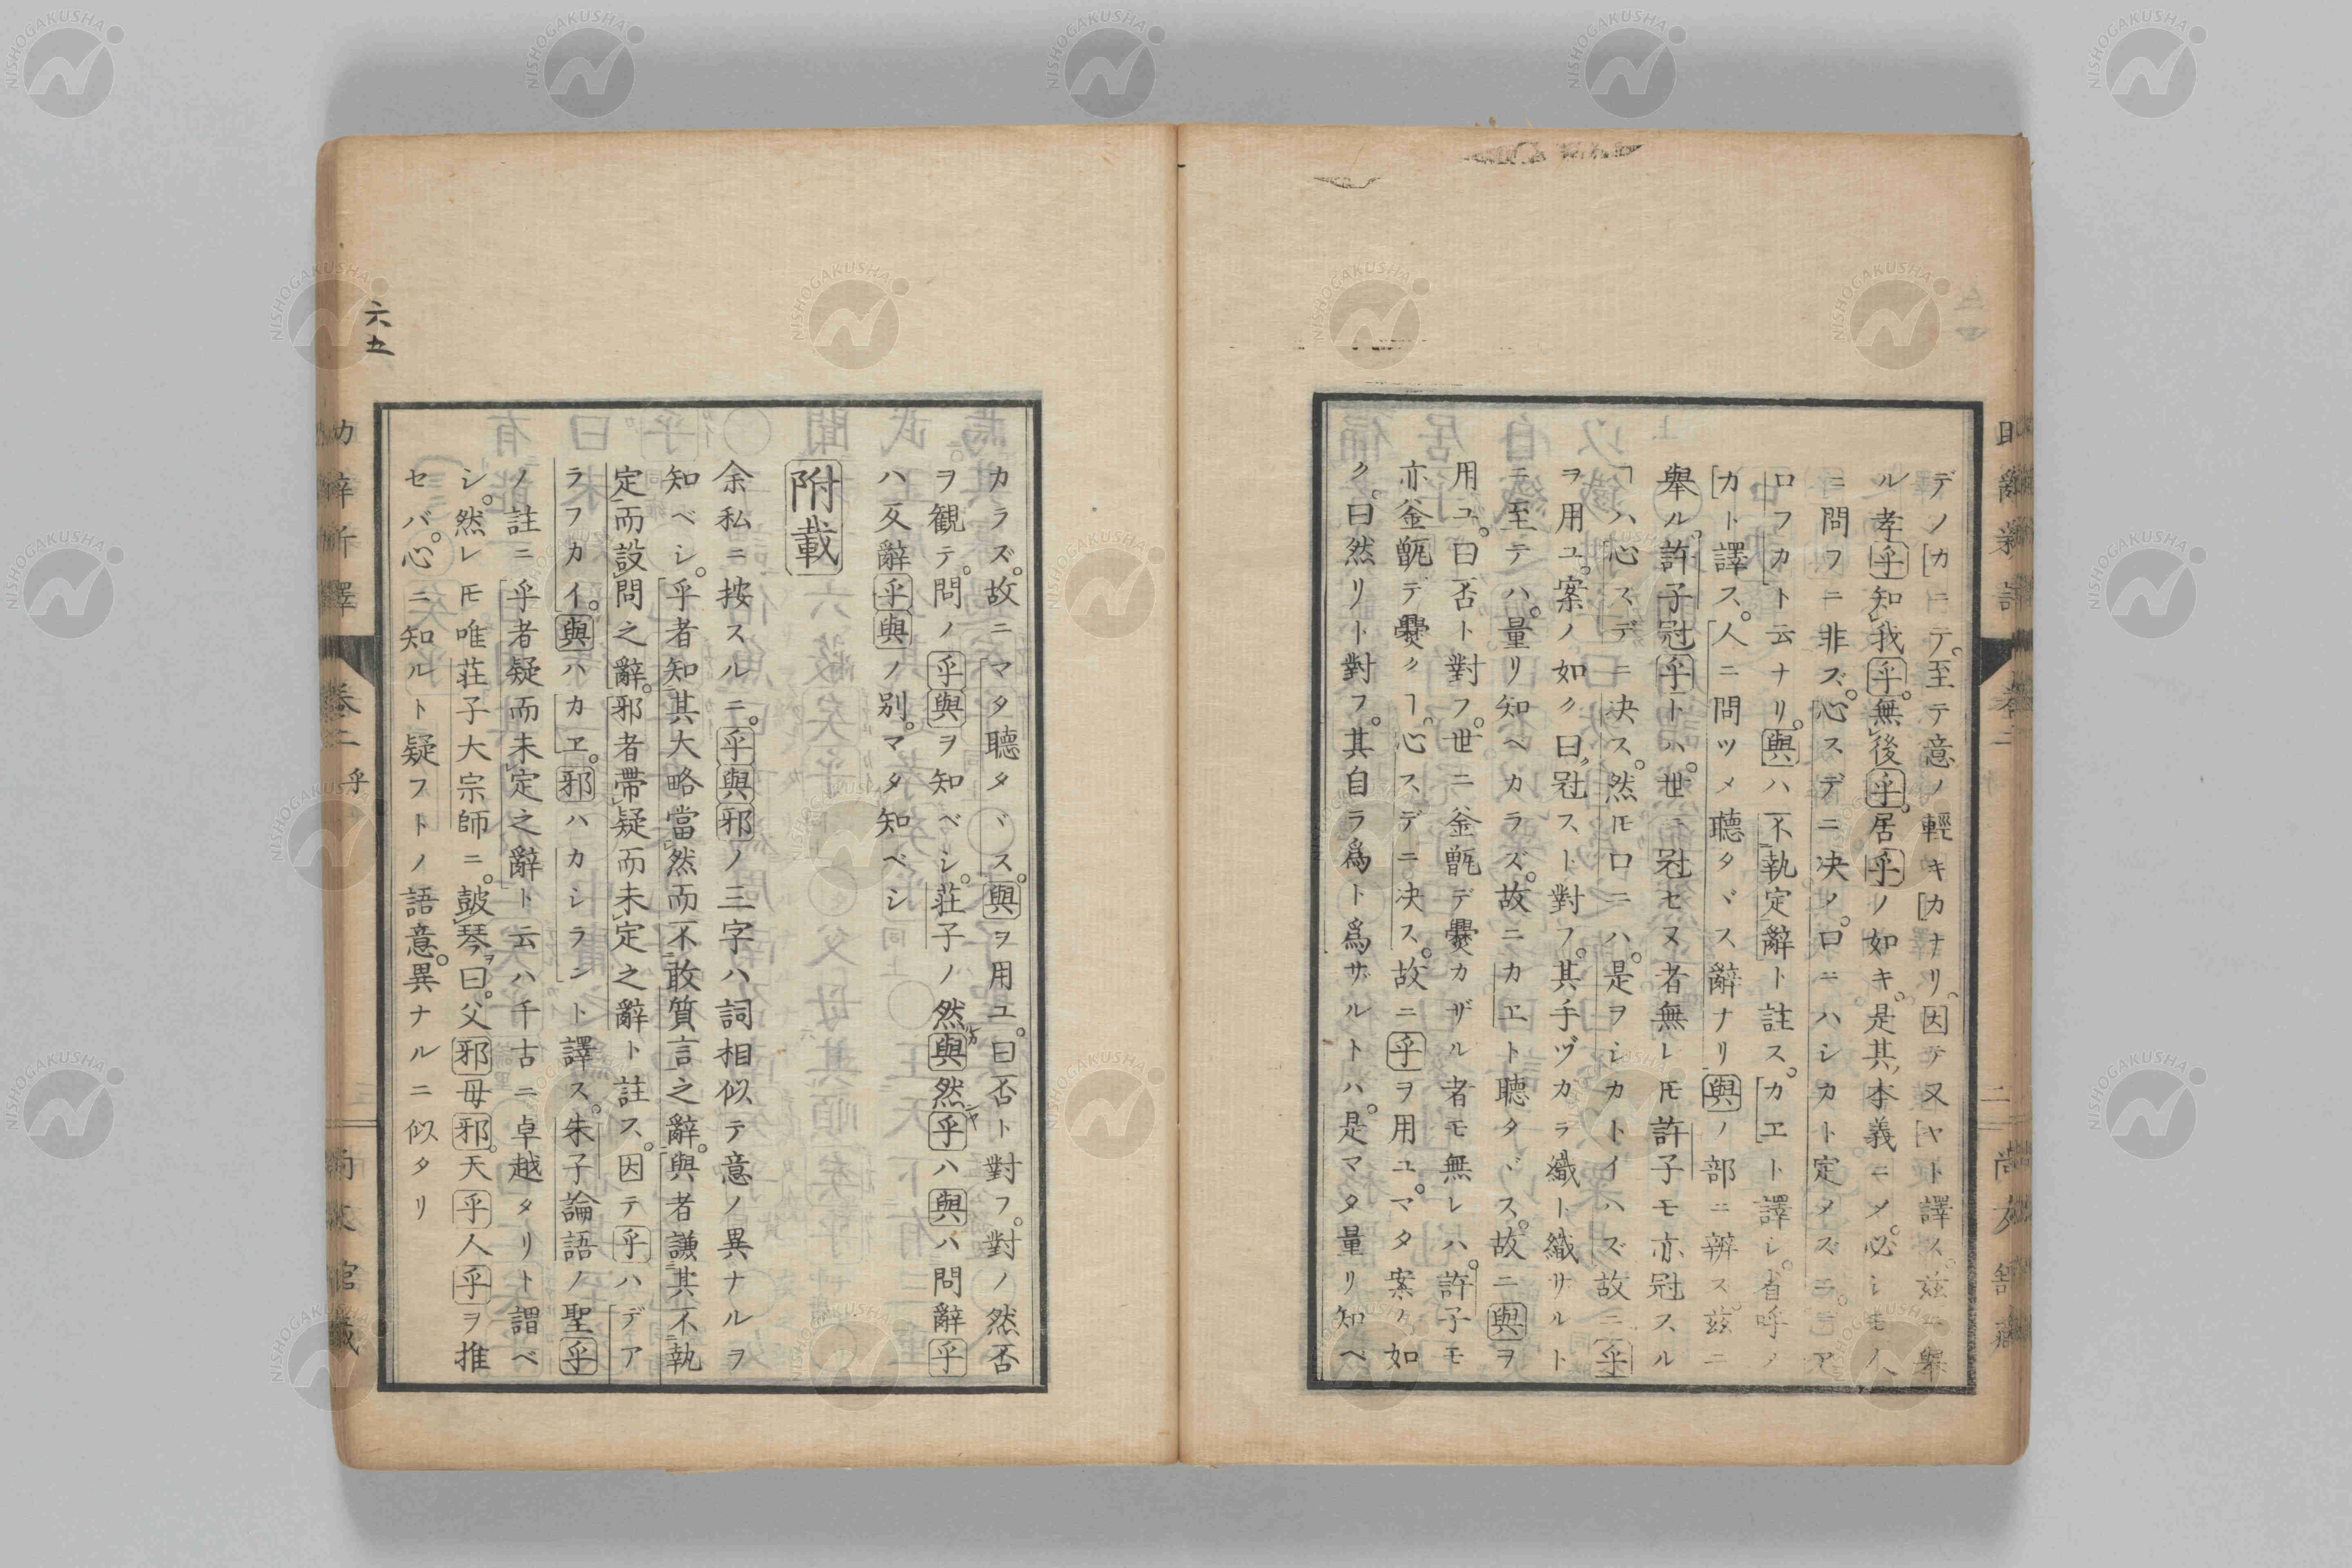 デノ「カニテ。至テ意ノ輕キ「カナリ。因テ又「ヤト譯ス。茲ニ舉
ル孝乎。知我乎。無後乎。居乎ノ如キ。是其本義ニメ。必シモ人
ニ問フニ非ズ。心スデニ决ノ。口ニハシカト定メズニ。ア
ロフカト云ナリ。與ハ不執定辭ト註ス。カヱト譯シ。
「カト譯ス。人ニ問ツメ聽タヾス辭ナリ與ノ部ニ辨ス茲ニ
舉ル。許子冠乎トハ。世ニ冠セヌ者無レ𪜈許子モ亦冠スル
ヿハ心スデニ决ス。然𪜈口ニハ。是ヲシカトイハズ故ニ乎
ヲ用ユ。案ノ如ク曰冠スト對フ。其手ヅカラ織ト織サルト
ニ至テハ。量リ知ベカラズ。故ニカヱト聽タヾス。故ニ與ヲ
用ユ。曰否ト對フ。世ニ釜甑デ爨カザル者モ無レハ。許子モ
亦釜甑デ爨クヿ。心スデニ决ス。故ニ乎ヲ用ユ。マタ案ノ如
ク。曰然リト對フ。其自ラ爲ト爲ザルトハ。是マタ量リ知ベ
カラズ。故ニマタ聽タヾス。與ヲ用ユ。曰否ト對フ。對ノ然否
ヲ観テ。問ノ乎與ヲ知ベシ。莊子ノ然與然乎ハ與ハ問辭乎
ハ反辭乎與ノ別。マタ知ベシ
附載
余私ニ按スルニ。乎與邪ノ三字ハ詞相似テ意ノ異ナルヲ
知ベシ。乎者知其大略當然而不敢質言之辭。與者謙其不執
定而設問之辭。邪者帶疑而未定之辭ト註ス。因テ乎ハデア
ラフカイ。與ハカヱ。邪ハカシラント譯ス。朱子論語ノ聖乎
ノ註ニ乎者疑而未定之辭ト云ハ千古ニ卓越タリト謂ベ
シ。然レ𪜈唯莊子大宗師ニ。鼓琴曰。父邪母邪。天乎人乎ヲ推
セバ。心ニ知ルト疑フトノ語意。異ナルニ似タリ
六五
卷二 乎